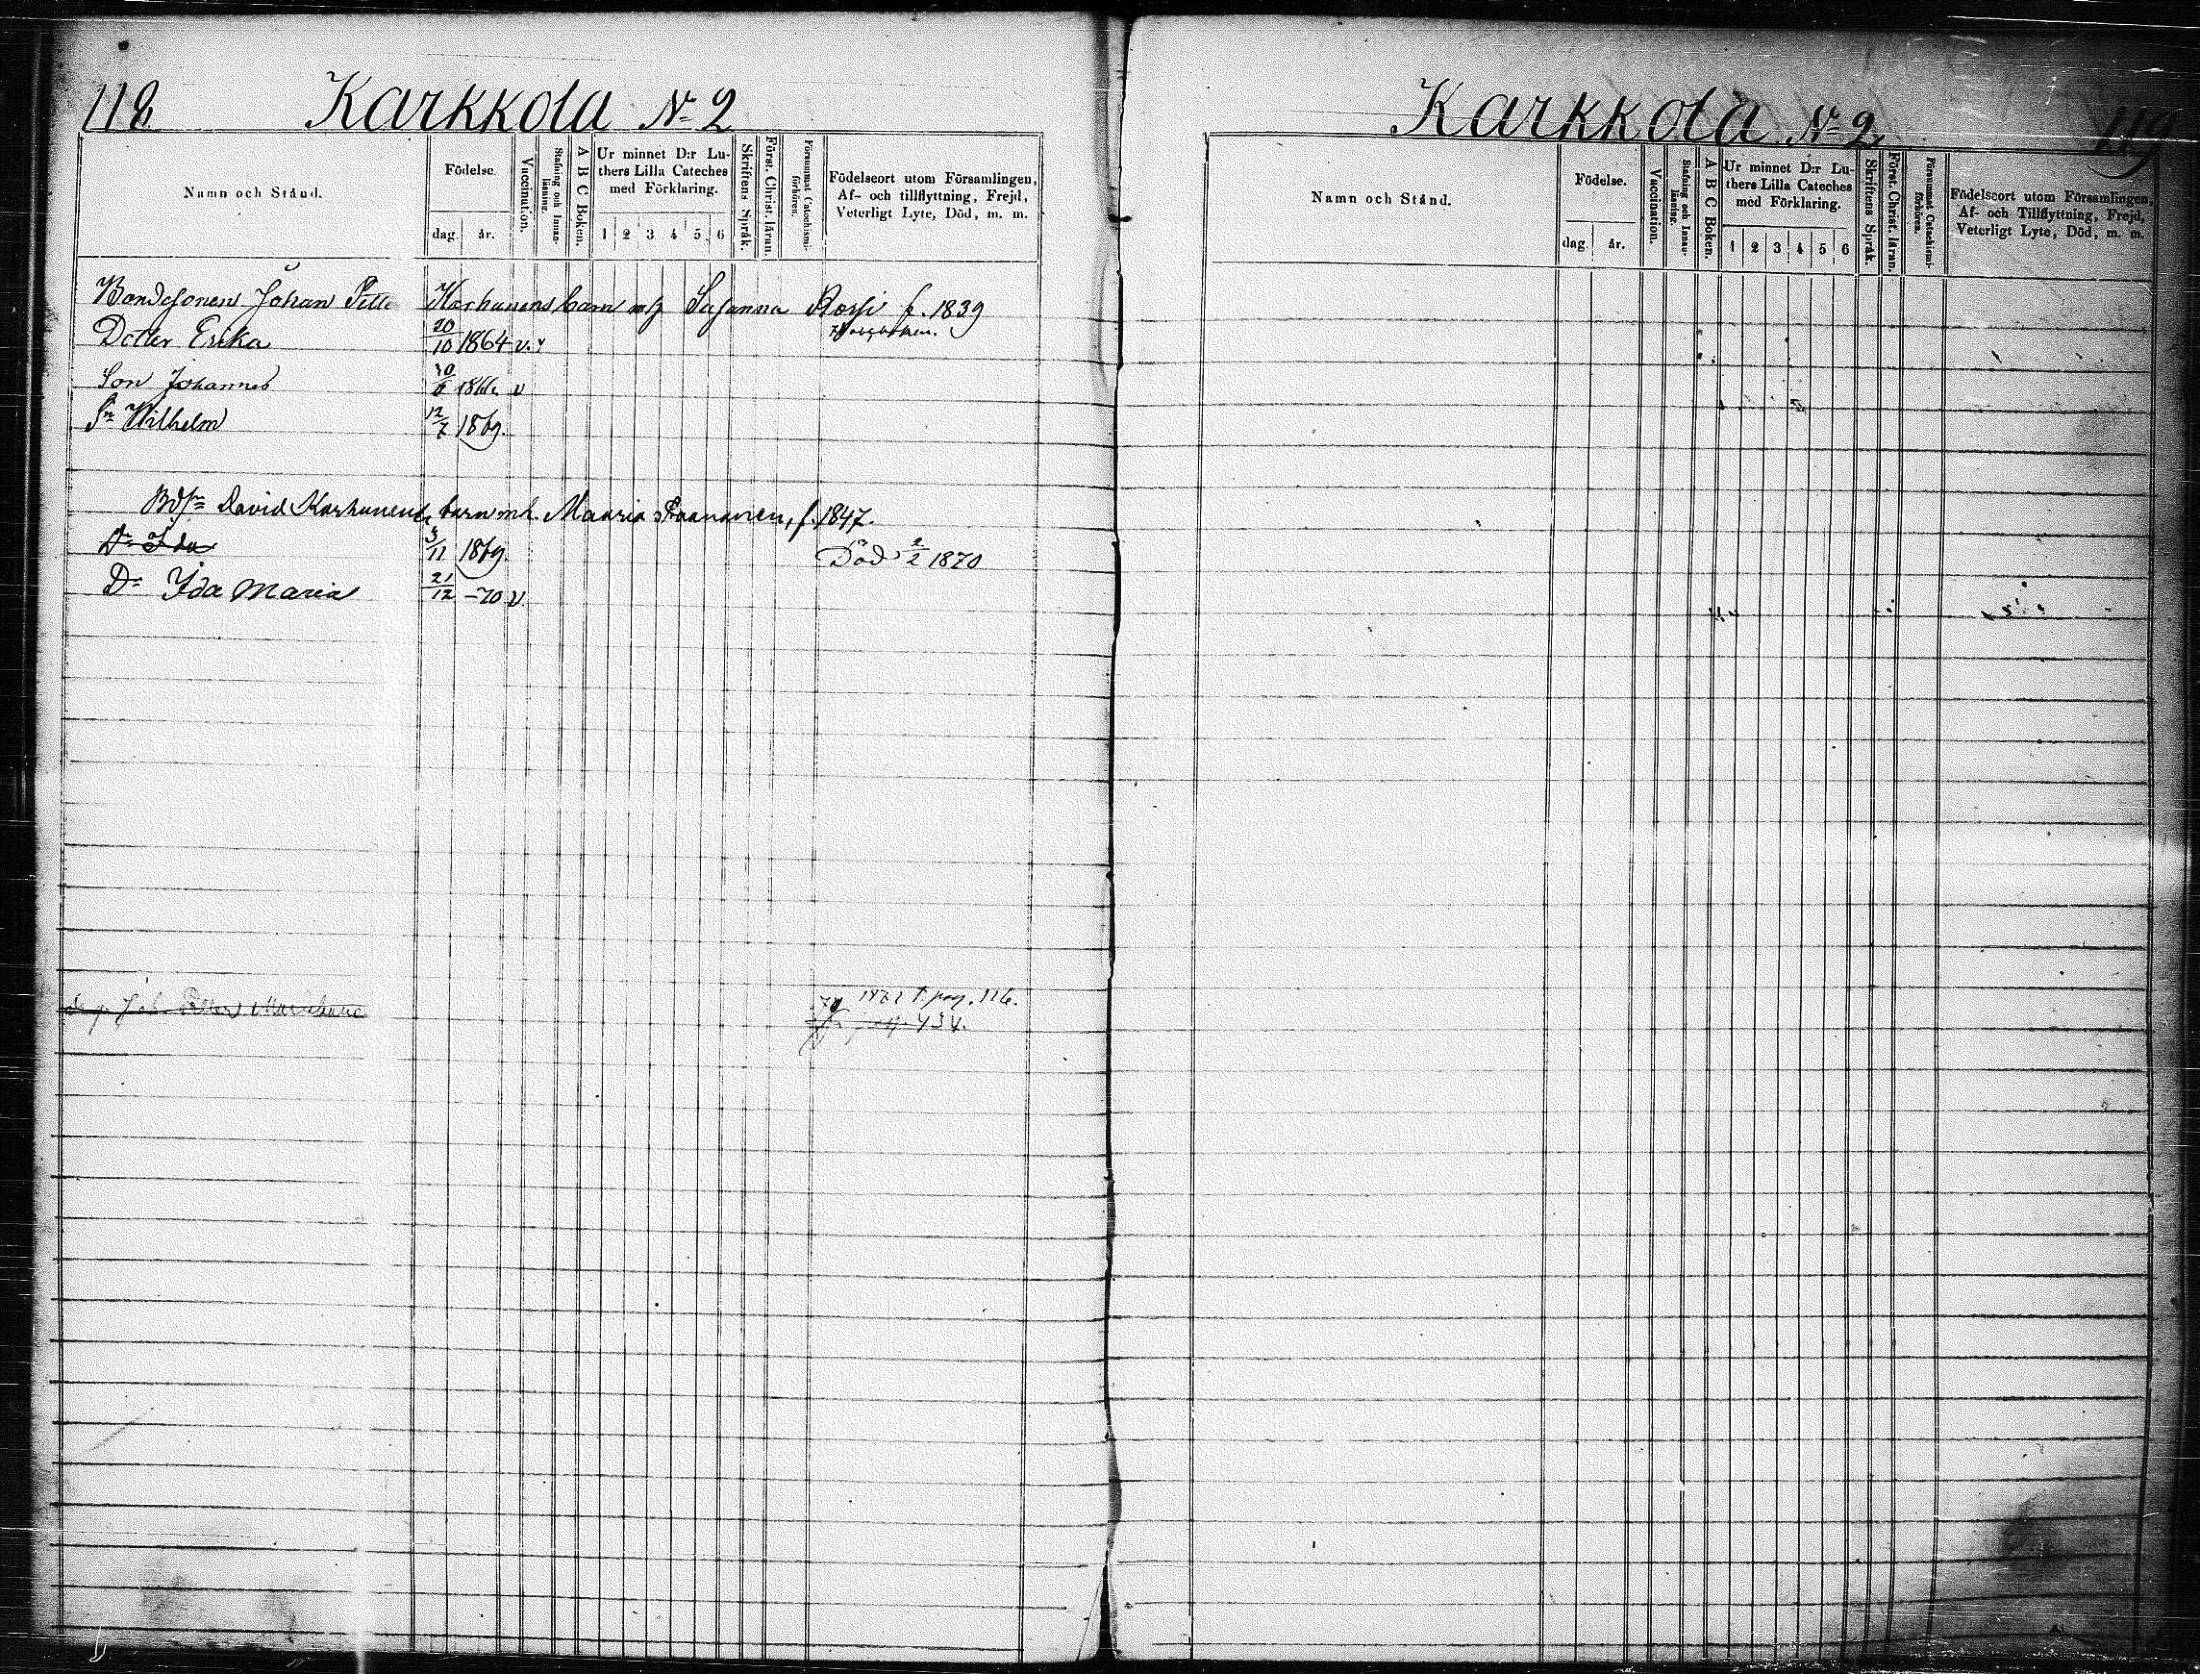 118 Karkkola No 2
Namn och Stånd. Födelse. dag. år. Vaccination. Stafning och Innanläsning. A B C Boken. Ur minnet D:r Luthers Lilla Cateches med Förklaring. 1 2 3 4 5 6 Skriftens Språk. Först. Christ. läran. Försummat Catechismiförhören. Födelseort utom Församlingen, Af- och tillflyttning, Frejd, Veterligt Lyte, Död, m. m.
Bondesonen Johan Pette Karhunens barn m Susanna Rossi f. 1839
Dotter Erika 20/10 1864 v.
Son Johannes 1866 v
Sn Wilhelm 12/7 1869.
Bdsn David Karhunens barn m h. Maaria f. 1847.
Dr Ida 3/11 1869. Död 2/2 1870
Dr Ida Maria 21/12 -70 v
1871 f. pag. 116.
434.
Karkkola No 2 119
Namn och Stånd. Födelse. dag. år. Vaccination. Stafning och Innanläsning. A B C Boken. Ur minnet D:r Luthers Lilla Cateches med Förklaring. 1 2 3 4 5 6 Skriftens Språk. Först. Christ. läran. Försummat Catechismiförhören. Födelseort utom Församlingen, Af- och Tillflyttning, Frejd, Veterligt Lyte, Död, m. m.